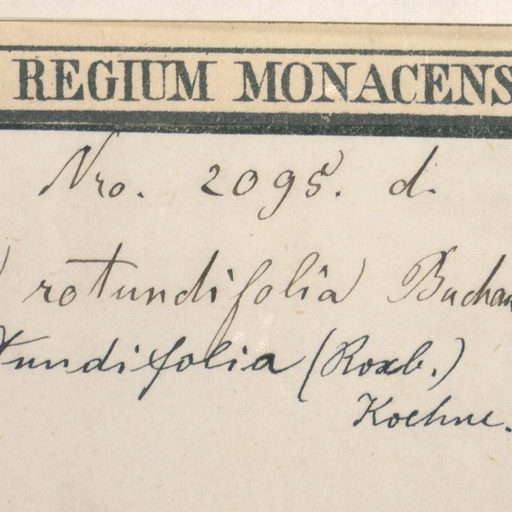 REGIUM MONACENS
Nro. 2095. d.
rotundifolia Buchan
tundifolia (Roxb.)
Koehne.